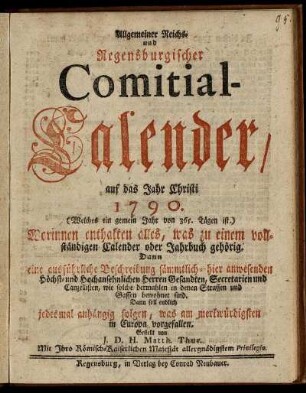 Allgemeiner Reichs-
und
Regensburgischer
Comitial-
Calender,
auf das Jahr Christi
1790.
(Welches ein gemein Jahr von 365. Tägen ist.)
Worinnen enthalten alles, was zu einem voll-
ständigen Calender oder Jahrbuch gehörig.
Dann
eine ausführliche Beschreibung sämmtlich-hier anwesenden
Höchst- und Hochansehnlichen Herren Gesandten, Secretarien und
Cantzelisten, wie solche dermahlen in denen Strassen und
Gassen bewohnet sind.
Dann soll endlich
jedesmal anhängig folgen, was am merkwürdigsten
in Europa vorgefallen.
Gestellt von
J. D. H. Matth. Thur.
Mit Ihro Römisch-Kaiserlichen Majestät allergnädigstem Privilegio.
Regensburg, in Verlag bey Conrad Neubauer.